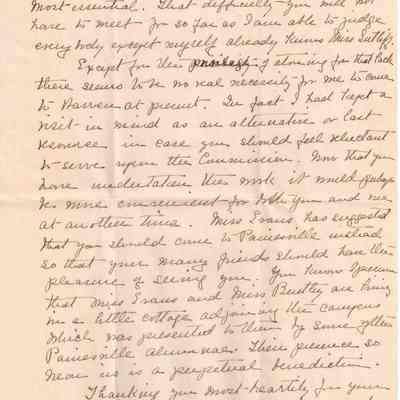 most essential. That difficulty you will not
have to meet for so far as I am able to judge
every body except myself already knows Miss Sutliff.
Except for the privilege of atoning for that lack
there seems to be no real necessity for me to come
to Warren at present. In fact I had kept a
visit in mind as an alternative or last
resource in case you should feel reluctant
to serve upon the Commission. Now that you
have undertaken the work it would perhaps
be more convenient for both you and me
at another time. Miss Evans has suggested
that you should come to Painesville instead
so that your many friends should have the
pleasure of seeing you. You know I presume
that Miss Evans and Miss Bentley are living
in a little cottage adjoining the campus
which was presented to them by some of the
Painesville Alumnae. Their presence so
near us is a perpetual benediction.
Thanking you most heartily for your